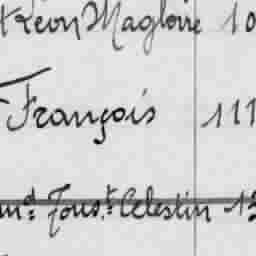 Léon Magloire 10
François 111
md. Toust. Celestin 13